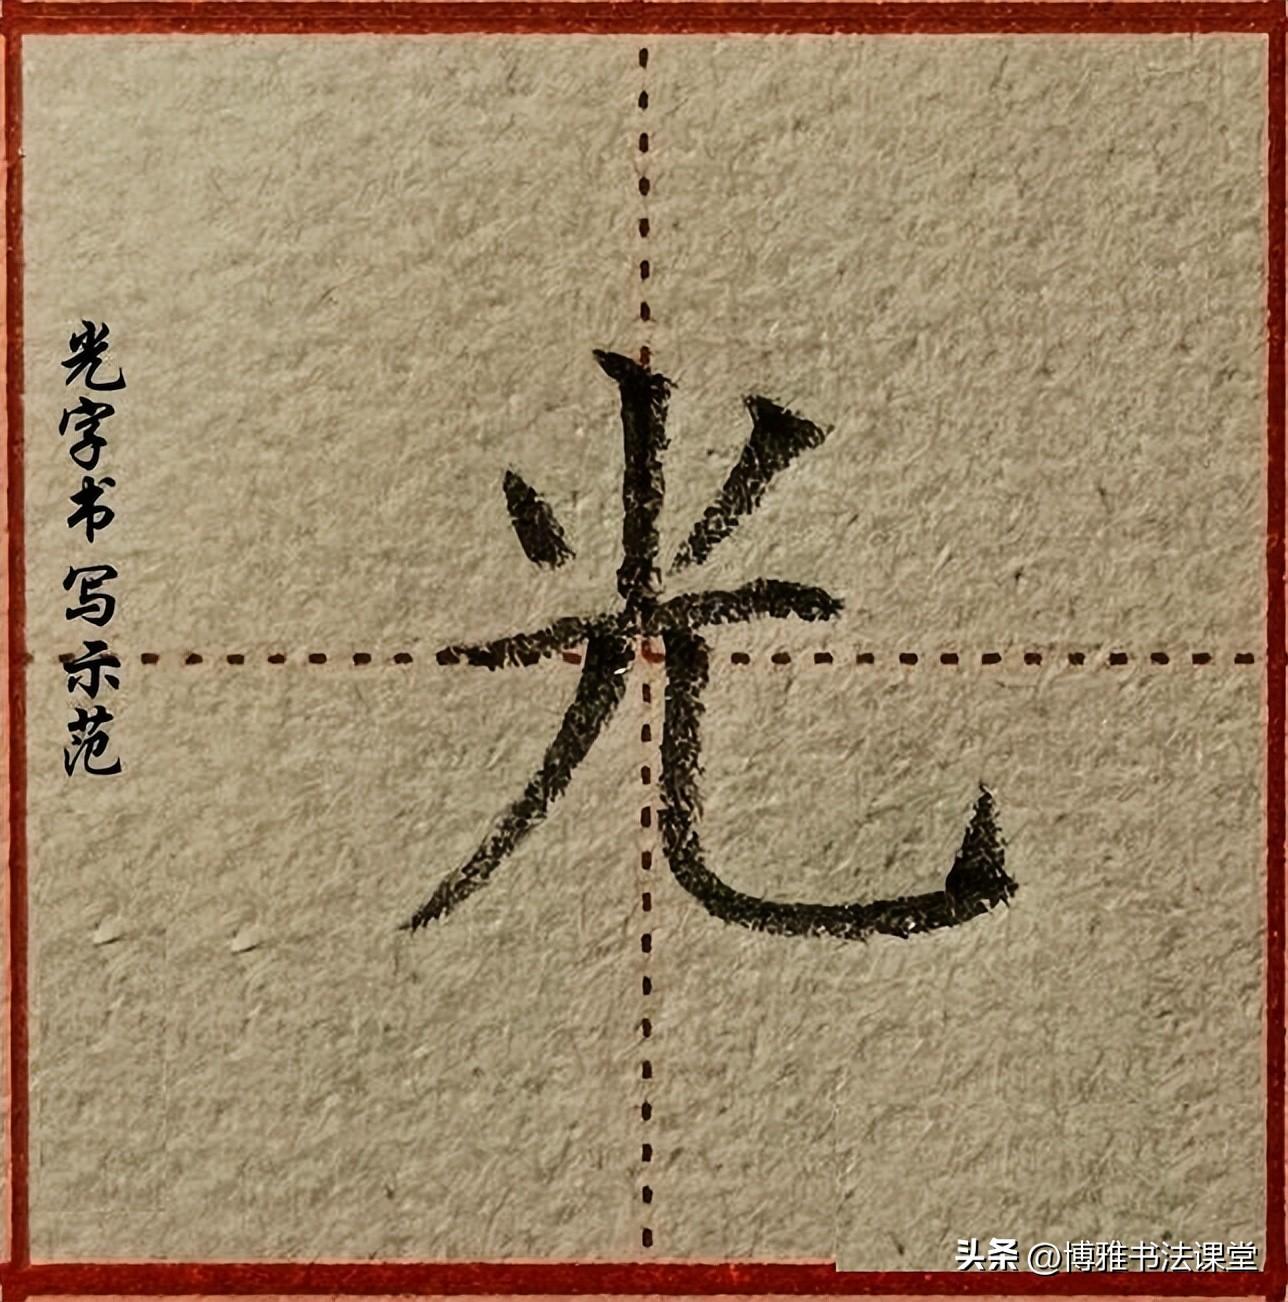 光字书写示范
光
头条 @博雅书法课堂